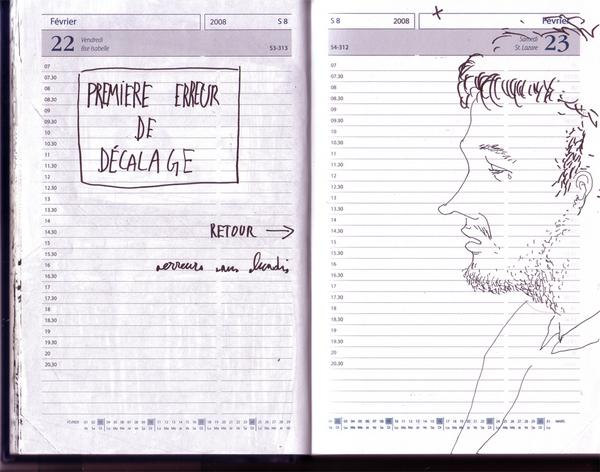 Février 2008 S 8
22 Vendredi
Bse Isabelle 53-313
07
07.30
08
08.30
09
09.30
10
10.30
11
11.30
12
12.30
13
13.30
14
14.30
15
15.30
16
16.30
17
17.30
18
18.30
19
19.30
20
20.30
PREMIERE ERREUR
DE
DÉCALAGE
RETOUR →
lundi
FÉVRIER
S 8 2008 Février
Samedi 23
54-312 St. Lazare
07
07.30
08
08.30
09
09.30
10
10.30
11
11.30
12
12.30
13
13.30
14
14.30
15
15.30
16
16.30
17
17.30
18
18.30
19
19.30
20
20.30
MARS